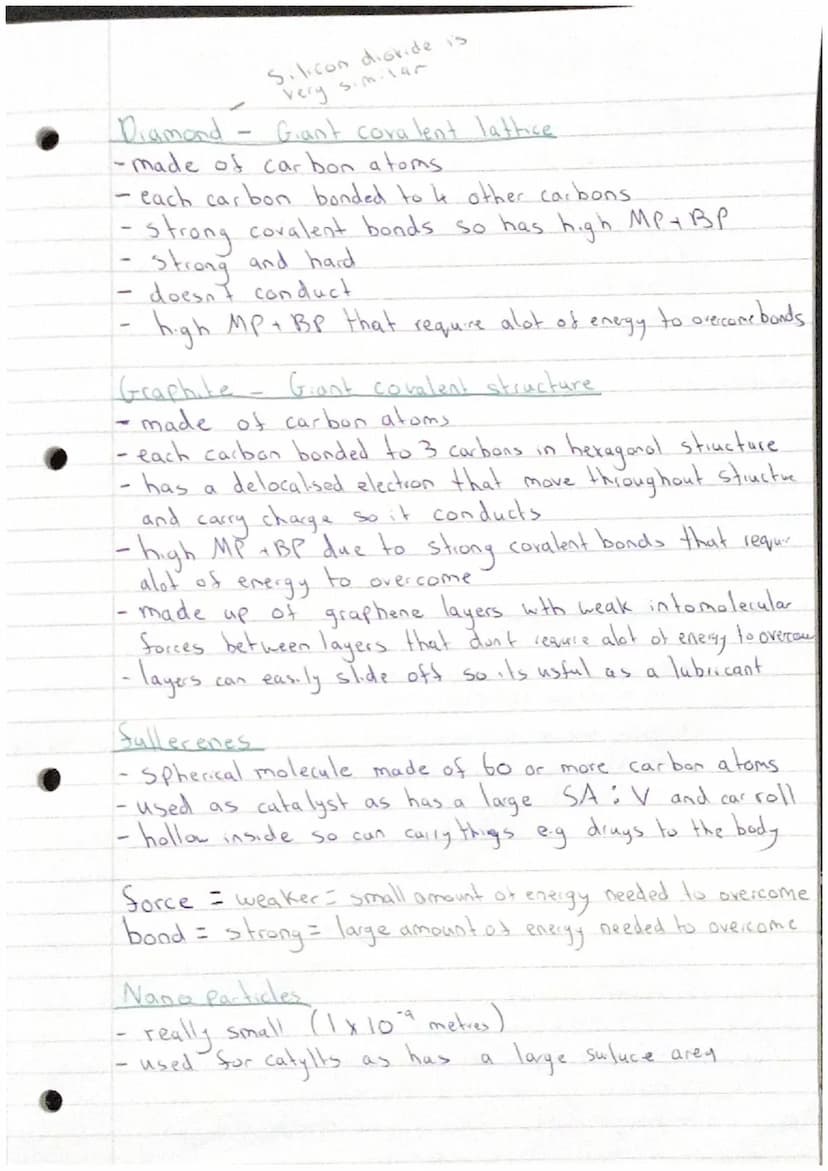 Silicon dioxide is
very similar
Diamond - Giant covalent lattice
- made of carbon atoms
- each carbon bonded to 4 other carbons
- strong covalent bonds so has high MP + BP
- strong and hard
- doesn't conduct
- high MP + BP that require alot of energy to overcome bonds
Graphite - Giant covalent structure
- made of carbon atoms
- each carbon bonded to 3 carbons in hexagonal structure
- has a delocalised electron that move throughout structue
and carry charge so it conducts
- high MP + BP due to strong covalent bonds that requi
alot of energy to overcome
- made up of graphene layers wth weak intomolecular
forces between layers that dont require alot of energy to overcom
- layers can easily slide off so its usful as a lubricant
fullerenes
- spherical molecule made of 60 or more carbon atoms
- used as catalyst as has a large SA : V and can roll
- hollow inside so can carry thigs e.g drugs to the body
force = weaker = small amount of energy needed to overcome
bond = strong = large amount of energy needed to overcome
Nano particles
- really small (1 x 10⁻⁹ metres)
- used for catylts as has a large suface area